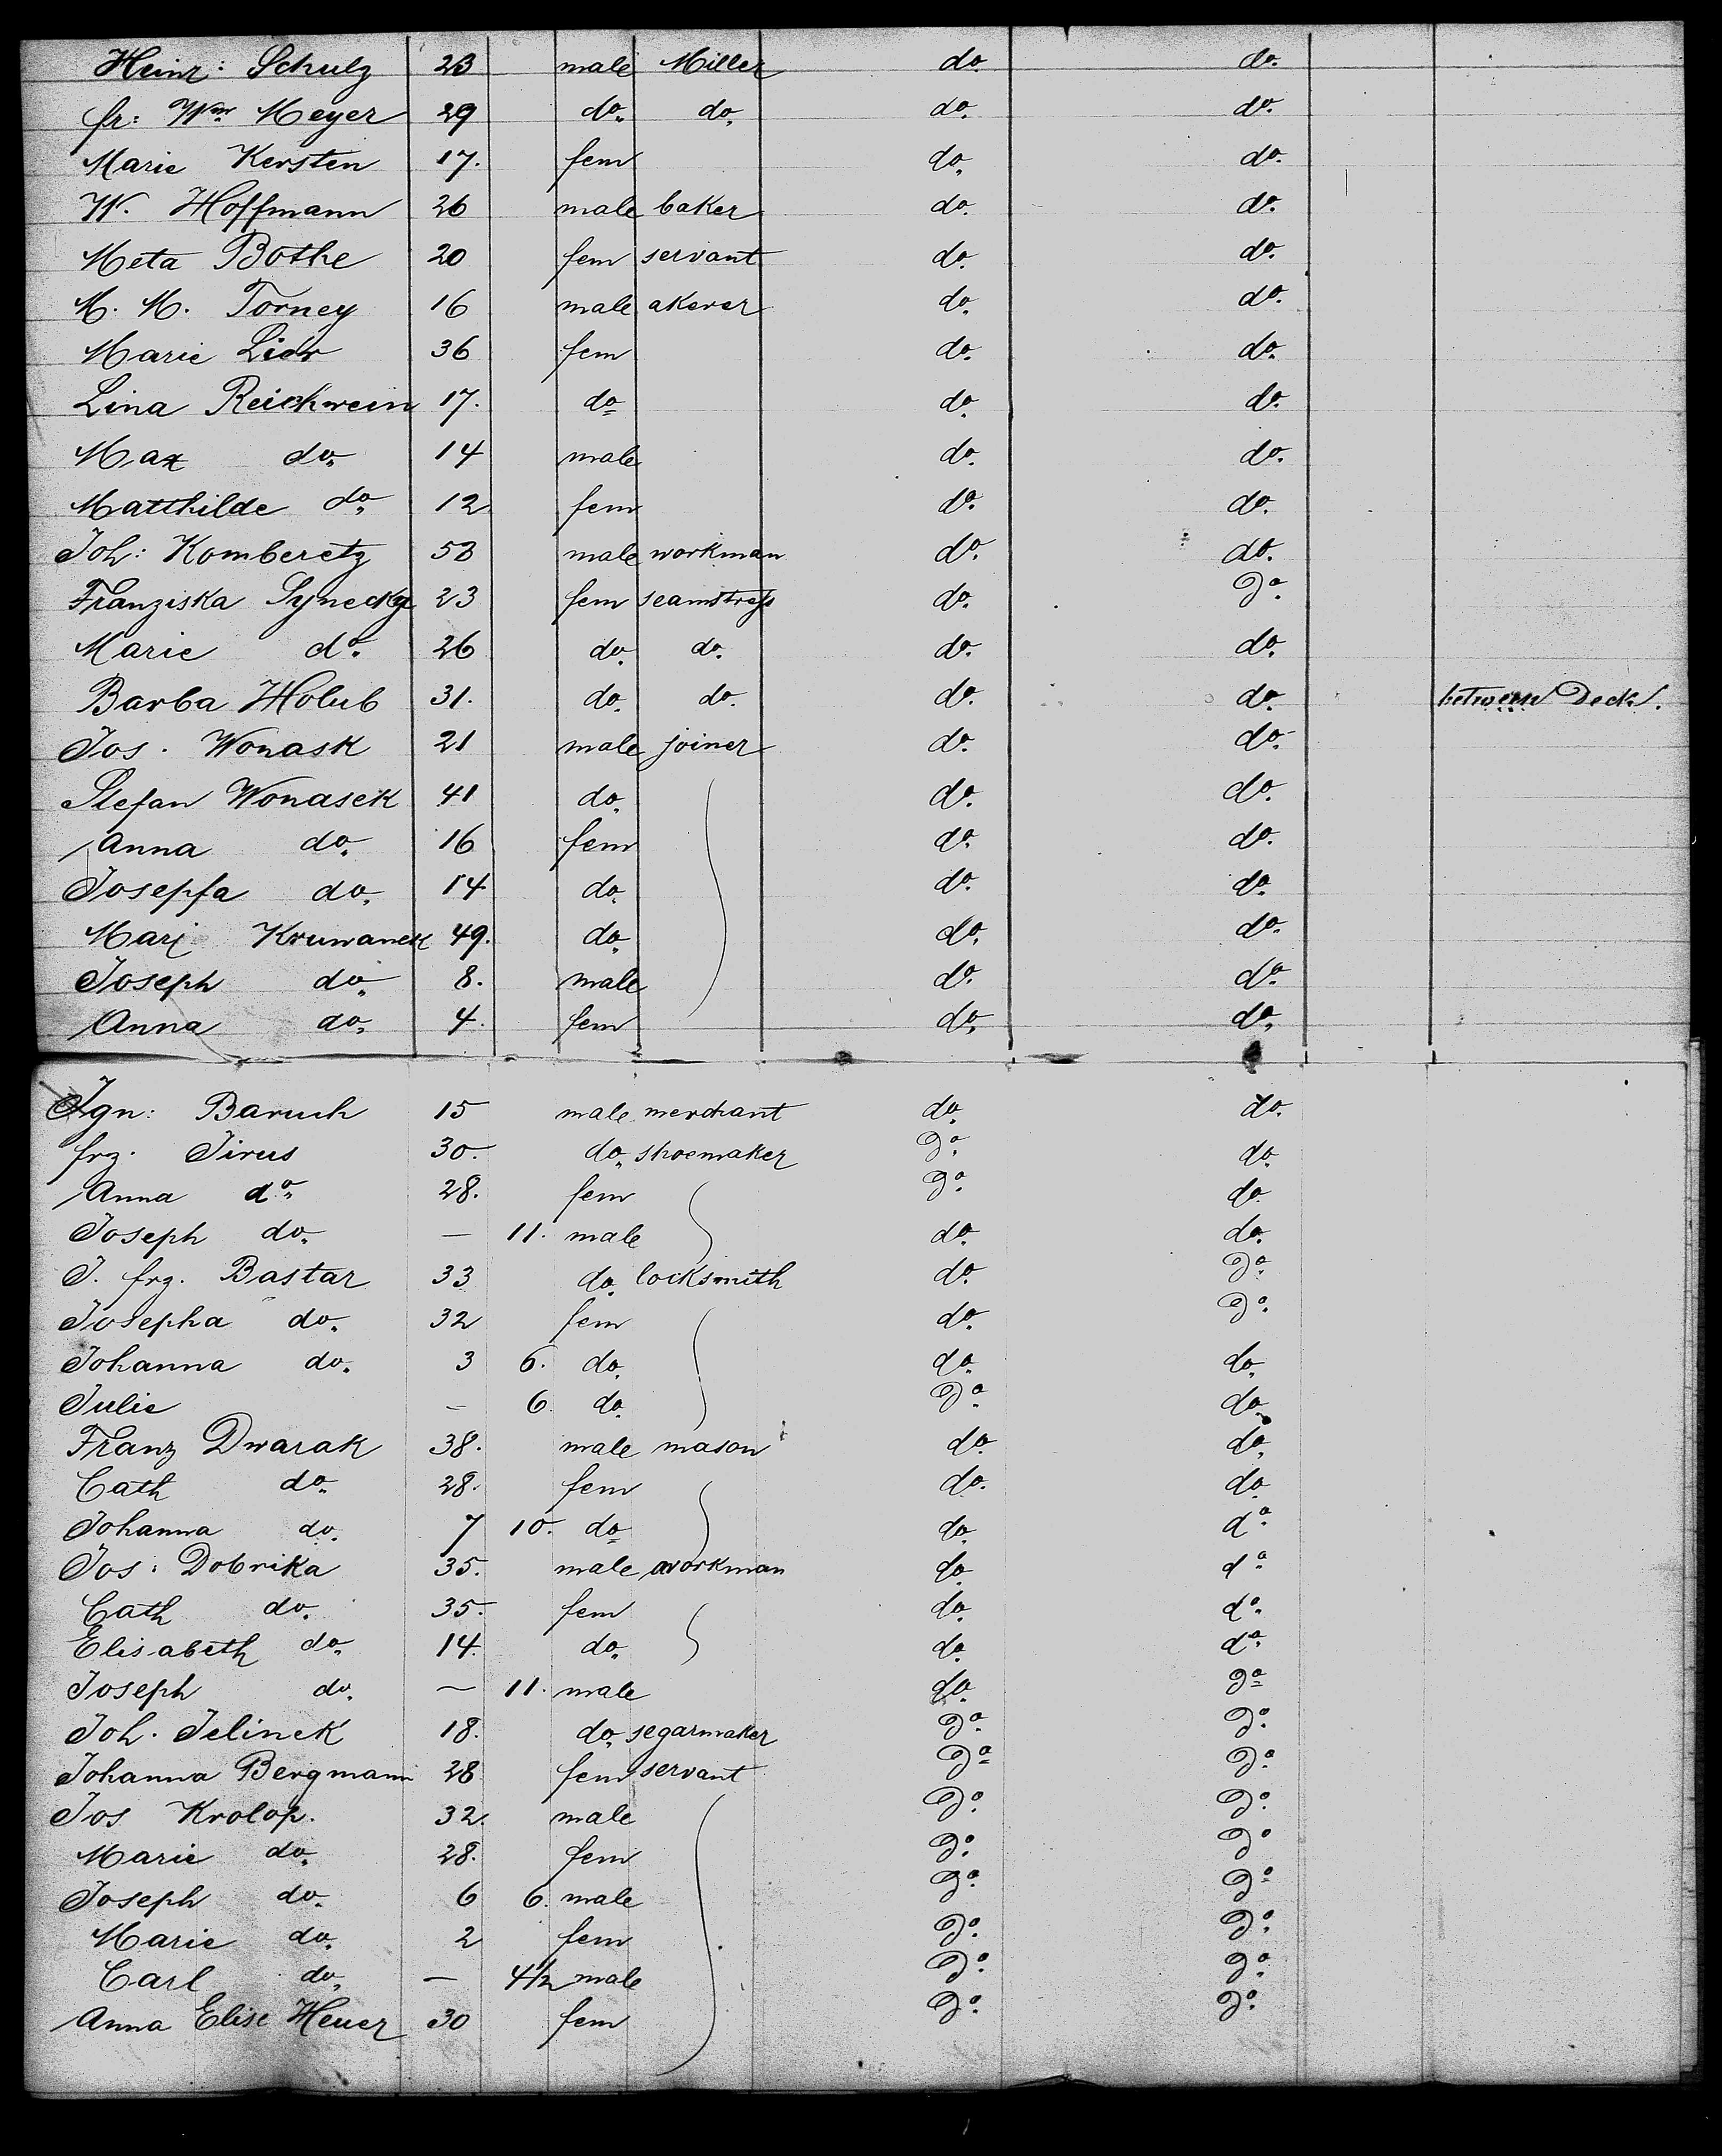 Heinr: Schulz 23 male Miller do. do.
fr: Wm Meyer 29 do. do. do. do.
Marie Kersten 17. fem do. do.
W. Hoffmann 26 male baker do. do.
Meta Bothe 20 fem servant do. do.
M. M. Torney 16 male do. do.
Marie 36 fem do. do.
Lina Reickwein 17. do do. do.
Max do. 14 male do. do.
Matthilde do. 12 fem do. do.
Joh: Komberetz 53 male workman do. do.
Franziska 23 fem seamstress do. do.
Marie do. 26 do. do. do. do.
Barba Holub 31. do. do. do. do. between Deck.
Jos. Wonask 21 male joiner do. do.
Stefan Wonasek 41 do. do. do.
Anna do. 16 fem do. do.
Josepfa do. 14 do. do. do.
Mari Kruwanek 49. do. do. do.
Joseph do. 8. male do. do.
Anna do. 4. fem do. do.
Ign: Baruch 15 male merchant do. do.
frz. Jirus 30. do. shoemaker do. do.
Anna do. 28. fem do. do.
Joseph do. — 11. male do. do.
J. frz. Bastar 33 do. locksmith do. do.
Josepha do. 32 fem do. do.
Johanna do. 3 6. do. do. do.
Julie — 6. do. do. do.
Franz Dwarak 38. male mason do. do.
Cath do. 28. fem do. do.
Johanna do. 7 10. do do. do.
Jos: Dobrika 35. male workman do. do.
Cath do. 35. fem do. do.
Elisabeth do. 14. do. do. do.
Joseph do. — 11. male do. do.
Joh. Jelinek 18. do. segarmaker do. do.
Johanna Bergmann 28 fem servant do. do.
Jos Krolop. 32. male do. do.
Marie do. 28. fem do. do.
Joseph do. 6 6. male do. do.
Marie do. 2 fem do. do.
Carl do. — 4½ male do. do.
Anna Elise Heuer 30 fem do. do.